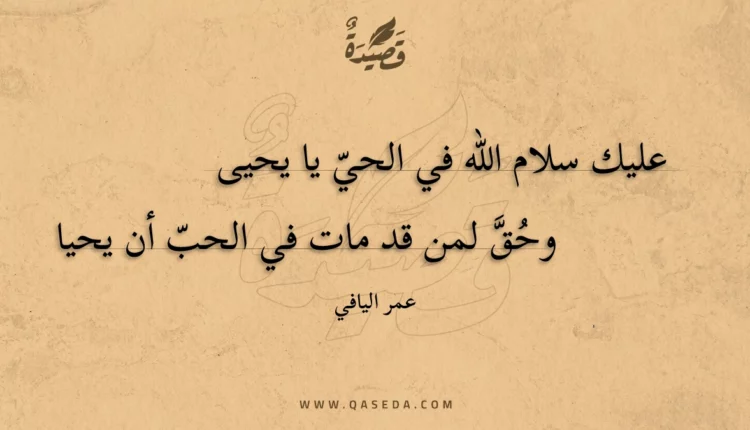 قَصِيْدَةٌ
عليك سلام الله في الحيّ يا يحيى
وحُقَّ لمنِ قد مات في الحبّ أن يحيا
عمر اليافي
WWW.QASEDA.COM